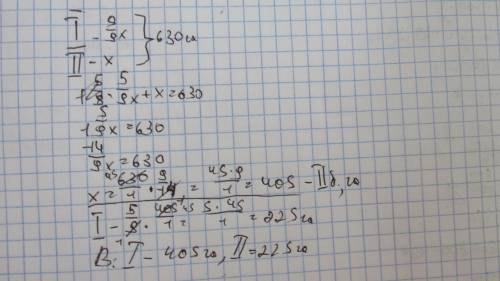 I - 5/9x } 630 га
II - x
1) 5/9x + x = 630
1 5/9x = 630
14/9x = 630
x = 630/1 · 9/14 = 45·9/1 = 405 - II б, га
I - 5/9 · 405/1 = 5·45/1 = 225 га
В: I - 405 га, II = 225 га